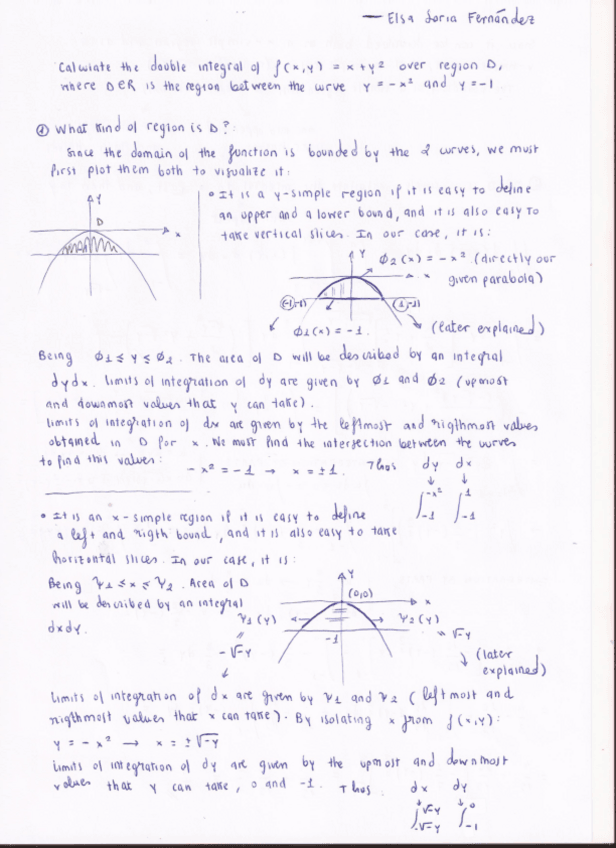 — Elsa Soria Fernández
Calculate the double integral of f(x,y) = x+y² over region D,
where D∈R is the region between the curve y = -x² and y = -1
① What kind of region is D?:
Since the domain of the function is bounded by the 2 curves, we must
first plot them both to visualize it:
y
D
x
• It is a y-simple region if it is easy to define
an upper and a lower bound, and it is also easy to
take vertical slices. In our case, it is:
y
x
ϕ2(x) = -x² (directly our
given parabola)
(-1,-1)
(1,-1)
ϕ1(x) = -1.
(later explained)
Being ϕ1 ≤ y ≤ ϕ2. The area of D will be described by an integral
dydx. Limits of integration of dy are given by ϕ1 and ϕ2 (upmost
and downmost values that y can take).
Limits of integration of dx are given by the leftmost and rigthmost values
obtained in D for x. We must find the intersection between the curves
to find this values:
-x² = -1 → x = ±1. Thus
dy dx
↓ ↓
∫₋₁^(-x²) ∫₋₁^1
• It is an x-simple region if it is easy to define
a left and rigth bound, and it is also easy to take
horizontal slices. In our case, it is:
Being ψ1 ≤ x ≤ ψ2. Area of D
will be described by an integral
dxdy.
y
(0,0)
x
ψ1(y)
=
-√-y
-1
ψ2(y)
= √-y
(later
explained)
Limits of integration of dx are given by ψ1 and ψ2 (leftmost and
rigthmost values that x can take). By isolating x from f(x,y):
y = -x² → x = ±√-y
Limits of integration of dy are given by the upmost and downmost
values that y can take, 0 and -1. Thus:
dx dy
↓ ↓
∫_(-√-y)^(√-y) ∫₋₁^0